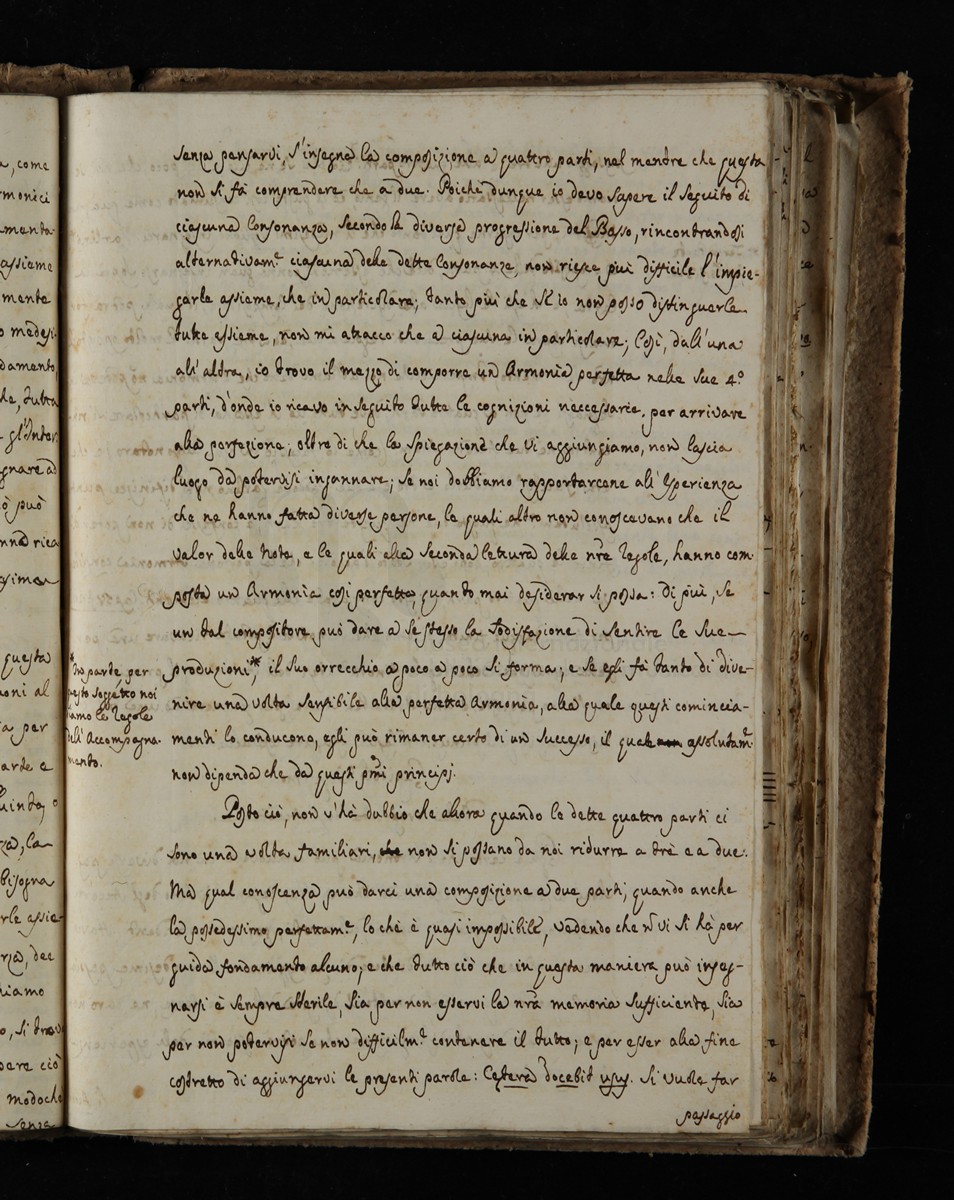 a, come
monici
mento
assieme
mente
o medesi
damento,
he, tutta
gl'Inter
gnare ad
ò può
nnà rica
simen
questa
oni al
a per
arte e
uinta, o
za, la
bisogna
rle assie-
rza, dee
hiamo
o, si trov
pere ciò
modoche
senza
senza pensarvi, s'insegna la composizione a quattro parti, nel mentre che questa
non si fà comprendere che a due. Poiche dunque io devo sapere il seguito di
ciascuna Consonanza, secondo la diversa progressione del Basso, rincontrandosi
alternativam.te ciascuna delle dette Consonanze, non riesce più difficile l'impie-
garle assieme, che in particolare; tanto più che se io non posso distinguerle
tutte assieme, non mi attacco che a ciascuna in particolare; Così, dall'una
all'altra, io trovo il mezzo di comporre un Armonia perfetta nelle sue 4.o
parti, d'onde io ricavo in seguito tutte le cognizioni neccessarie, per arrivare
alla perfezione; oltre di che la spiegazione che vi aggiungiamo, non lascia
luogo da potervisi ingannare; se noi dobbiamo rapportarcene all'esperienza
che ne hanno fatta diverse persone, le quali altro non conoscevano che il
valor delle Note, e le quali alla seconda lettura delle nre Regole, hanno com-
posto un Armonia così perfetta, quanto mai desiderar si possa: Di più, se
un tal compositore può dare a se stesso la sodisfazione di sentire le sue
produzioni*, il suo orrecchio a poco a poco si forma; e se egli fà tanto di dive-
nire una volta sensibile alla perfetta Armonia, alla quale questi comincia-
menti lo conducono, egli può rimaner certo di un successo, il quale assolutam.te
non dipende che da questi pmi principj.
* In parte, per
questo soggetto noi
diamo le Regole
dell'Accompagna-
mento.
Posto ciò, non v'hà dubbio che allora quando le dette quattro parti ci
sono una volta familiari, che non si possano da noi ridurre a trè e a due.
Mà qual conoscenza può darci una composizione a due parti, quando anche
la possedessimo perfettam.te, lo chè è quasi impossibile, vedendo che ñ vi si hà per
guida fondamento alcuno; e che tutto ciò che in questa maniera può inseg-
narsi è sempre sterile, sia per non esservi la nrã memoria sufficiente, sia
per non potervisi se non difficilm.te contenere il tutto; e per esser alla fine
costretto di aggiungervi le presenti parole: Cetera docebit usus. Si vuole far
passaggio